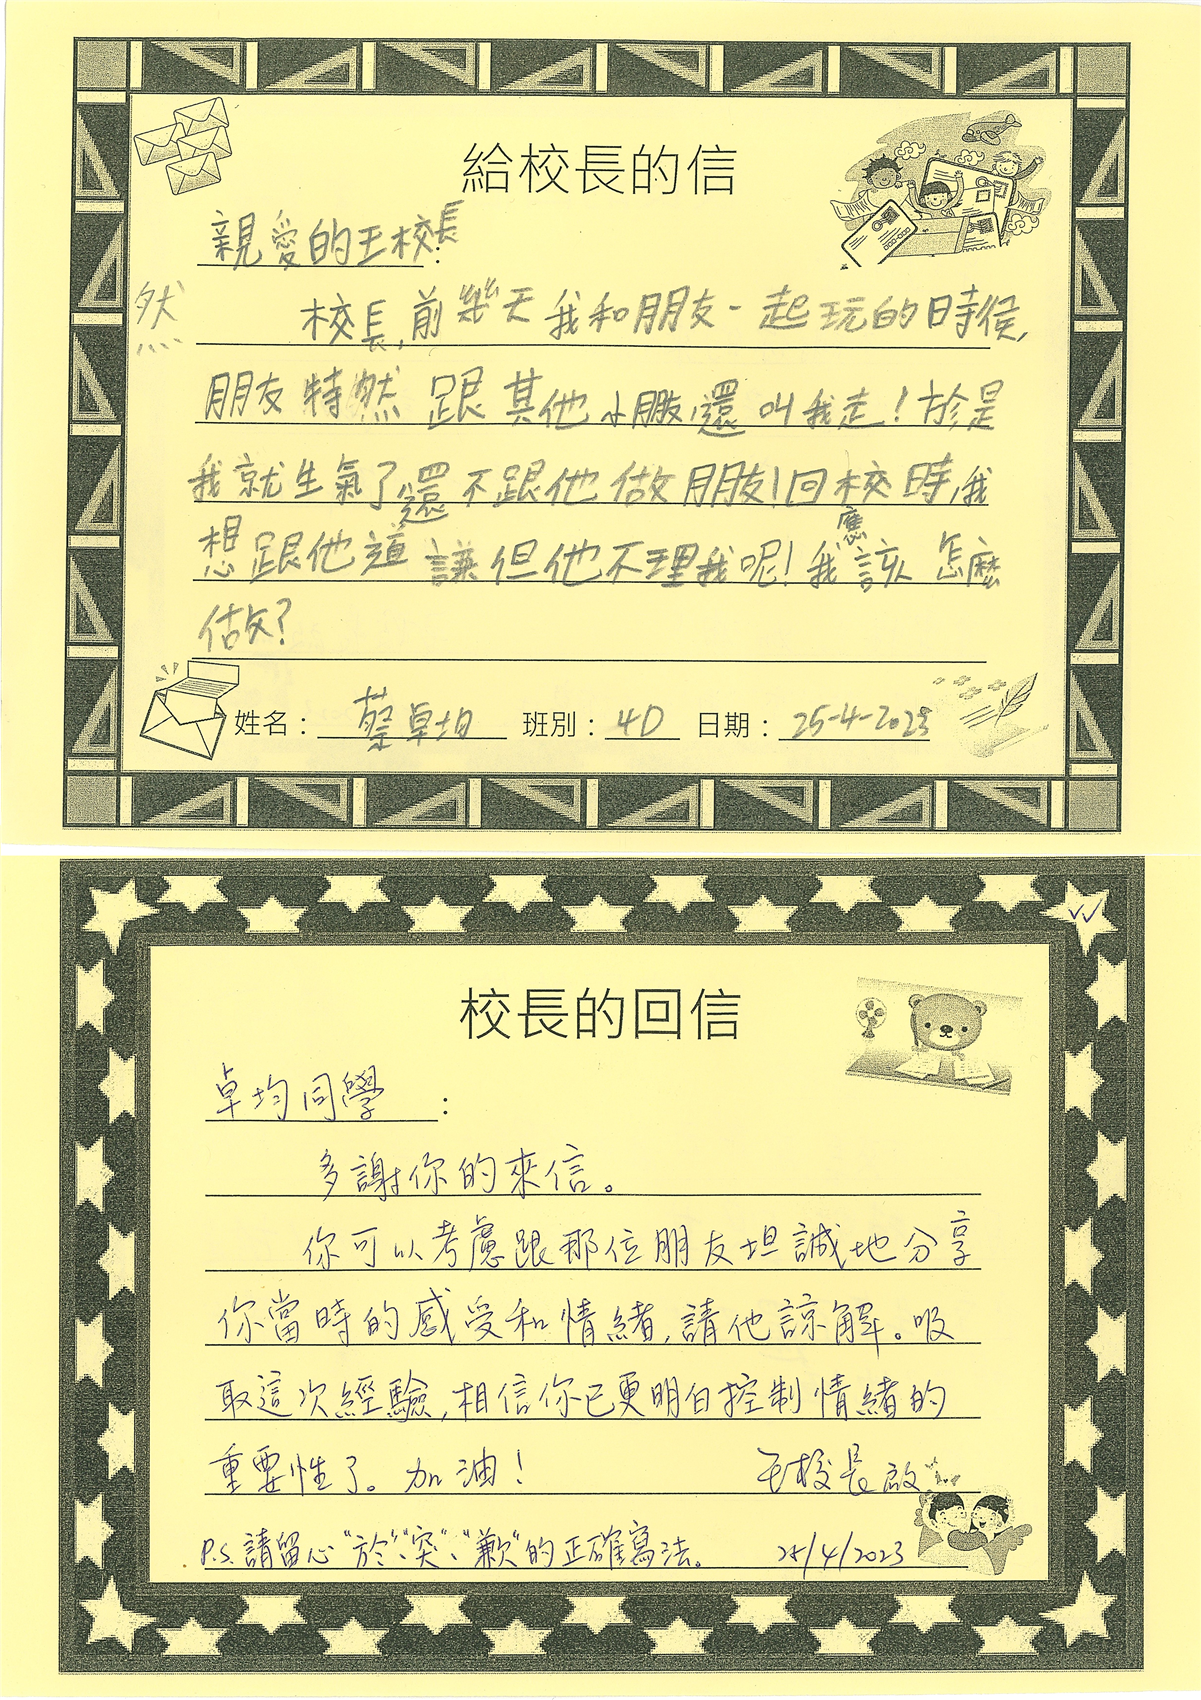 給校長的信
親愛的王校長：
然
校長,前幾天我和朋友一起玩的時候,
朋友特然跟其他小朋友,還叫我走!於是
我就生氣了還不跟他做朋友!回校時,我
想跟他道謙但他不理我呢!我應該怎麼
做?
姓名：蔡卓均 班別：4D 日期：25-4-2023
校長的回信
卓均同學：
多謝你的來信。
你可以考慮跟那位朋友坦誠地分享
你當時的感受和情緒,請他諒解。吸
取這次經驗,相信你已更明白控制情緒的
重要性了。加油!
王校長啟
P.S.請留心"於"、"突"、"歉"的正確寫法。 25/4/2023